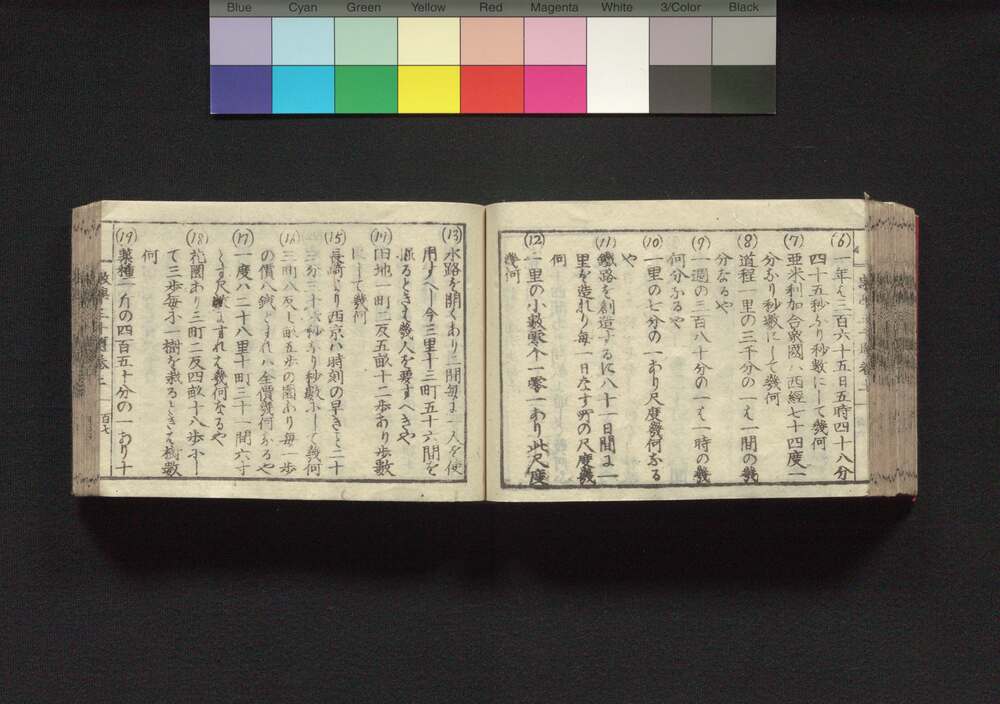 Blue Cyan Green Yellow Red Magenta White 3/Color Black
(6) 一年ハ三百六十五日五時四十八分
四十五秒あり秒数にして幾何
(7) 亜米利加合衆國ハ西経七十四度一
分あり秒数にして幾何
(8) 道程一里の三千分の一ハ一間の幾
分なるや
(9) 一週の三百八十分の一ハ一時の幾
何分なるや
(10) 一里の七分の一あり尺度幾何なる
や
(11) 鐵路を創造するに八十一日間に一
里を造れり毎一日の尺度幾
何
(12) 一里の小数零个一零一あり此尺度
幾何
(13) 水路を開くあり三間毎に一人を使
用すへし今三里十三町五十六間を
掘るときハ幾人を要すへきや
(14) 田地一町二反五畝十二歩あり歩数
にして幾何
(15) 長崎より西京ハ時刻の早きこと二十
三分三十六秒なり秒数にして幾何
(16) 三町八反七畝五歩の園あり毎一歩
の價八錢とすれハ全價幾何なるや
(17) 一度ハ二十八里十町三十一間六寸
とす尺数にすれハ幾何なるや
(18) 花園あり三町二反四畝十八歩にし
て三歩毎に一樹を栽るときハ樹数
何
(19) 菓種一斤の四百五十分の一あり十
数學三千題巻二 百七